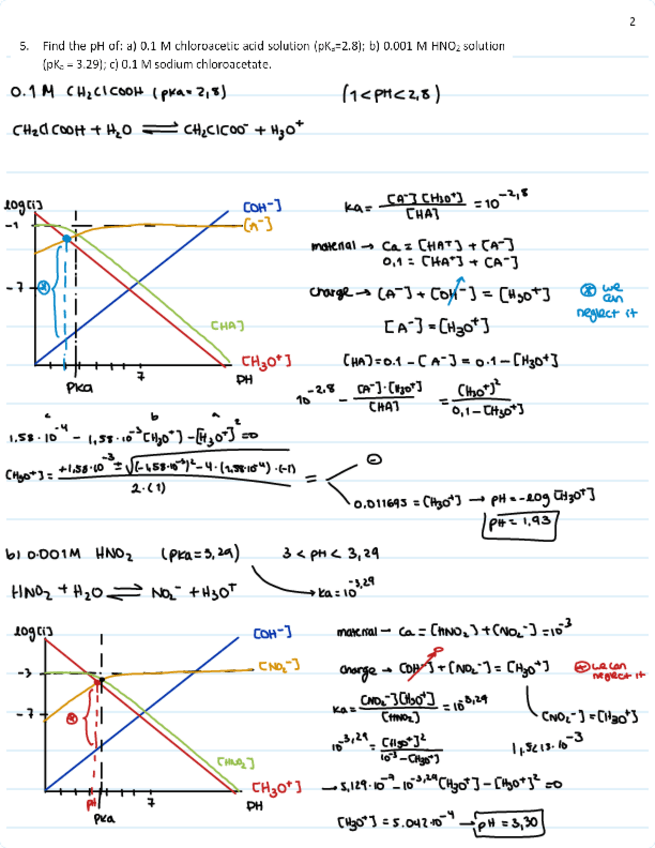 2
5. Find the pH of: a) 0.1 M chloroacetic acid solution (pKₐ=2.8); b) 0.001 M HNO₂ solution
(pKₐ = 3.29); c) 0.1 M sodium chloroacetate.
0.1M CH₂ClCOOH (pKa = 2,8) (1<pH<2,8)
CH₂ClCOOH + H₂O ⇌ CH₂ClCOO⁻ + H₃O⁺
log[i]
-1
-7
[OH⁻]
[A⁻]
[HA]
[H₃O⁺]
pKa
7
pH
Ka = [A⁻][H₃O⁺] / [HA] = 10^-2,8
material → Ca = [HA⁺] + [A⁻]
0,1 = [HA⁺] + [A⁻]
charge → [A⁻] + [OH⁻] = [H₃O⁺]
⊛ we can neglect it
[A⁻] = [H₃O⁺]
[HA] = 0.1 - [A⁻] = 0.1 - [H₃O⁺]
10^-2,8 = [A⁻]·[H₃O⁺] / [HA] = [H₃O⁺]² / 0,1 - [H₃O⁺]
c b a
1,58·10⁻⁴ - 1,58·10⁻³[H₃O⁺] - [H₃O⁺]² = 0
[H₃O⁺] = +1,58·10⁻³ ± √(-1,58·10⁻³)² - 4·(1,58·10⁻⁴)·(-1) / 2·(1) =
⊖
0,011695 = [H₃O⁺] → pH = -log [H₃O⁺]
pH = 1,93
b) 0.001M HNO₂ (pKa = 3,29) 3 < pH < 3,29
HNO₂ + H₂O ⇌ NO₂⁻ + H₃O⁺ → Ka = 10^-3,29
log[i]
-3
-7
[OH⁻]
[NO₂⁻]
[HNO₂]
[H₃O⁺]
pH
pKa
7
pH
material → Ca = [HNO₂] + [NO₂⁻] = 10⁻³
charge → [OH⁻] + [NO₂⁻] = [H₃O⁺]
⊛ we can neglect it
Ka = [NO₂⁻][H₃O⁺] / [HNO₂] = 10^3,29
[NO₂⁻] = [H₃O⁺]
10^-3,29 = [H₃O⁺]² / 10⁻³ - [H₃O⁺]
→ 5,129·10⁻⁷ - 10^-3,29 [H₃O⁺] - [H₃O⁺]² = 0
[H₃O⁺] = 5.042·10⁻⁴ → pH = 3,30